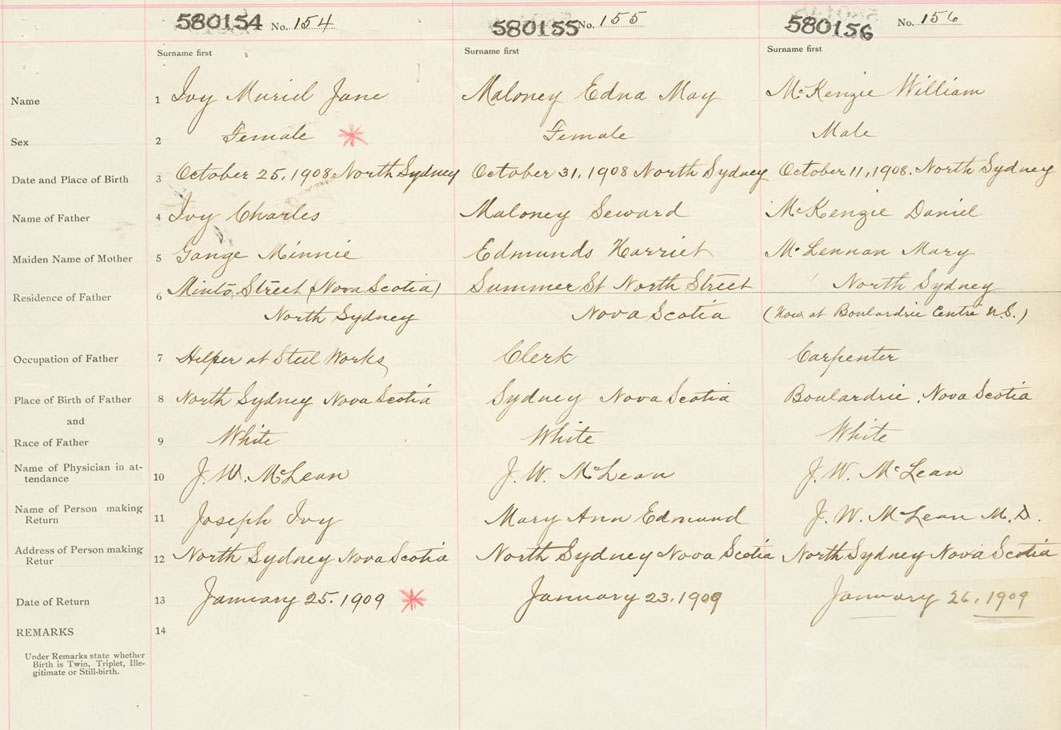 580154 No. 154 580155 No. 155 580156 No. 156
Surname first Surname first Surname first
Name 1 Ivy Muriel Jane Maloney Edna May McKenzie William
Sex 2 Female Female Male
Date and Place of Birth 3 October 25, 1908 North Sydney October 31, 1908 North Sydney October 11, 1908. North Sydney
Name of Father 4 Ivy Charles Maloney Seward McKenzie Daniel
Maiden Name of Mother 5 Gange Minnie Edmunds Harriet McLennan Mary
Residence of Father 6 Minto Street (Nova Scotia) Summer St North Street North Sydney
North Sydney Nova Scotia (Now at Boulardrie Centre N.S.)
Occupation of Father 7 Helper at Steel Works Clerk Carpenter
Place of Birth of Father 8 North Sydney Nova Scotia Sydney Nova Scotia Boulardrie, Nova Scotia
and
Race of Father 9 White White White
Name of Physician in at-
tendance 10 J. W. McLean J. W. McLean J. W. McLean
Name of Person making
Return 11 Joseph Ivy Mary Ann Edmund J. W. McLean M.D.
Address of Person making
Retur 12 North Sydney Nova Scotia North Sydney Nova Scotia North Sydney Nova Scotia
Date of Return 13 January 25. 1909 January 23. 1909 January 26. 1909
REMARKS 14
Under Remarks state whether
Birth is Twin, Triplet, Ille-
gitimate or Still-birth.